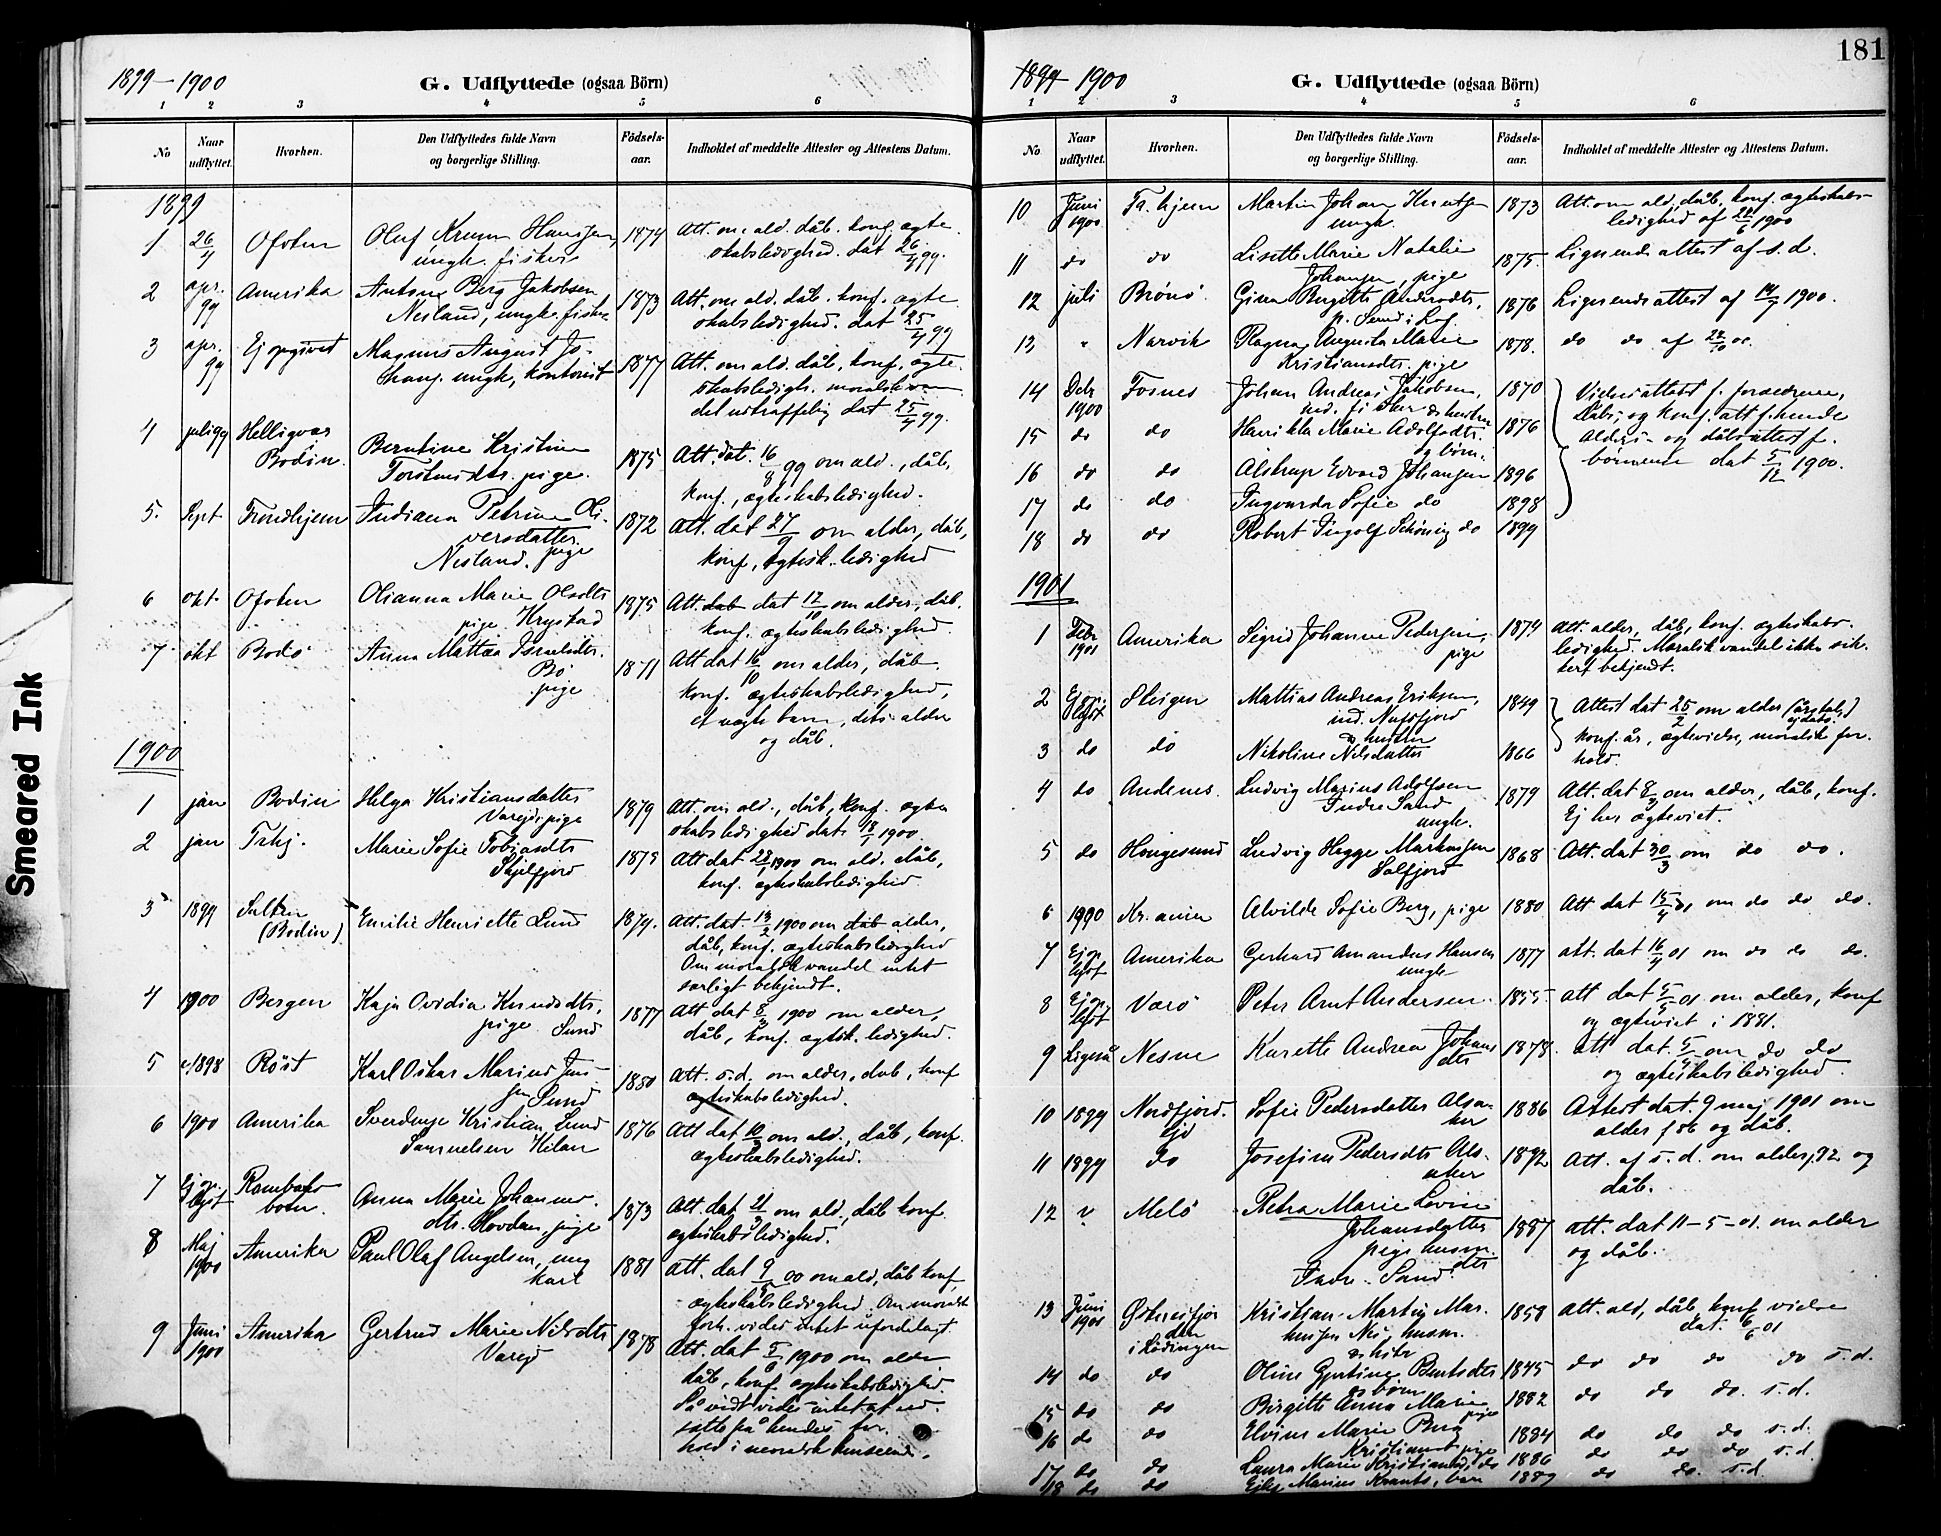 1899 – 1900
G. Udflyttede (ogsaa Börn)
1 2 3 4 5 6
No
Naar udflyttet.
Hvorhen.
Den Udflyttedes fulde Navn
og borgerlige Stilling.
Födsels-
aar.
Indholdet af meddelte Attester og Attestens Datum.
1899
1 26/4 Ofoten Oluf Krumm Hansen, 1874 Att. om ald. dåb. konf. ægte
ungk. fisker skabsledighed. dat 26/4 99.
2 apr. 99 Amerika Antone Berg Jakobsen 1873 Att. om ald. dåb. konf. ægte
Nesland, ungk. fisker skabsledighed. dat 25/4 99
3 apr. 99 Ej opgivet Magnus August Jo- 1877 Att. om ald. dåb, konf. ægte.
hans. ungk, kontorist skabsledigh. moralsk van
del ustraffelig dat 25/4 99.
4 juli 99 Helligvær Bodin. Berntine Kristine 1875 Att. dat. 16/8 99 om ald., dåb,
pige. konf., ægteskabsledighed.
5. Sept Trondhjem Indiana Petrine Oli- 1872 Att. dat 27/9 om alder, dåb,
versdatter. pige konf, ægtesk. ledighed
Nesland.
6 okt. Ofoten Olianna Marie Olsdts 1875 Att. dat 12/10 om alder, dåb.
pige. konf. ægteskabsledighed.
7 okt Bodö Anna Mattea 1871 Att dat 16/10 om alder, dåb.
Bö pige konf. ægteskabsledighed,
et uægte barn, dets alder
og dåb.
1900
1 jan Bodin Helga Kristiansdatter 1879 Att, om ald., dåb, konf. ægte
pige skabsledighed dat. 18/1 1900.
2 jan Trhj. Marie Sofie Tobiasdts 1875 Att dat 1900 om ald. dåb,
Skjelfjord konf. ægteskabsledighed.
3 1899 Salten (Bodin) Emilie Henriette Lund 1879. Att. dat. 13/2 1900 om dåb alder,
dåb, konf. ægteskabsledighed
Om moralsk vandel intet
særligt bekjendt.
4 1900 Bergen Kaja Ovidia Knudsdts, 1877 Att dat 1900 om alder,
pige. Sund dåb, konf. ægtesk. ledighed.
5 1898 Röst Karl Oskar Marius Jen- 1880 Att. s.d. om alder, dåb, konf
sen Sund ægteskabsledighed.
6 1900 Amerika Sverdrup Kristian Lund 1876 Att dat 10/3 om ald., dåb, konf.
Samuelsen Kilan ægteskabsledighed.
7 Ej op- lyst Rombaks- botn. Anna Marie Johannes- 1873 Att. dat 21/3 om ald, dåb konf.
dtr. Hovden, pige ægteskabsledighed.
8 Maj 1900 Amerika Paul Olaf Angelsen, ung 1881 Att. dat 00 om ald, dåb konf,
karl ægteskabsledighed. Om moralsk
forh. vides intet ufordelagt.
9 Juni 1900 Amerika Gertrud Marie Nilsdts 1878 Att. dat 5/6 1900 om alder
dåb, konf. ægteskabsledighed.
Så vidt vides intet at ud-
sætte på hendes for-
hold i moralsk henseende.
1899 1900
181
G. Udflyttede (ogsaa Börn)
1 2 3 4 5 6
No
Naar udflyttet.
Hvorhen.
Den Udflyttedes fulde Navn
og borgerlige Stilling.
Födsels-
aar.
Indholdet af meddelte Attester og Attestens Datum.
10 Juni 1900 Martin Johan 1873 Att. om ald, dåb, konf. ægteskabs-
ungk. ledighed af 1900
11 do do Lisette Marie Natalie 1875. Lignende attest af s.d.
Johansen, pige
12 juli Brönö. Gina Birgitte Andersdts, 1876 Lignende attest af 14/7 1900.
p. Sund i Lof.
13 " Narvik Ragna Augusta Marie 1878. do do af 22/10 00.
Kristiansdts. pige
14 Decbr 1900 Fosnes Johan Andreas Jakobsen, 1870 Vielsesattest f. foreldrene,
ind. fisker & hustru Dåbs, og konf. att f. hende
15 do do Henrikka Marie Adolfsdts. 1876 Alders- og dåbsattest f.
og börn. börnene dat 5/12 1900.
16 do do Alstrup Edvard Johansen 1896
17 do do Ingvarda Sofie do 1898
18 do do Robert Ingolf Schöning do 1899
1901
1 Febr 1901 Amerika Sigrid Johanne Pedersen, 1874 Att. alder, dåb, konf. ægteskabs-
pige ledighed. Moralsk vandel ikke sik-
kert bekjendt.
2 Ej op- lyst Steigen Mattias Andreas Eriksen, 1849 Attest dat 25/2 om alder (årstal,)
ind. Nusfjord ej dato.
& hustru konf. år, ægtevielse, moralsk for-
3 do do Nikoline Nilsdatter 1866 hold.
4 do Andenes. Ludvig Marius Adolfsen 1879 Att. dat om alder, dåb, konf.
Indre Sand Ej her ægteviet.
ungk.
5 do Haugesund Ludvig Hegge Markusen 1868 Att. dat 30/3 om do do.
6 1900 Kr.ania Alvilde Sofie Berg, pige 1880 Att dat 15/4 01 om do do do.
7 Ej op- lyst Amerika Gerhard Amandus Hansen 1877 att. dat 16/4 01 om do do do.
ungk
8 Ej op- lyst Værö Peter Arnt Andersen. 1855. att dat 5/5 01. om alder, konf
og ægteviet i 1881.
9 Ligeså Nesne Karette Andrea Johans 1878. att dat. om do do
dts og ægteskabsledighed.
10 1899 Nordfjord. Ejd Sofie Pedersdatter Alsa- 1886 Attest dat. 9 maj 1901 om
ker alder og dåb.
11 1899 do Josefine Pedersdts Als- 1892 Att. af s.d. om alder, 92 og
aker dåb.
12 Melö Petra Marie Lovise
Johansdatter 1887 att. dat 11-5-01. om alder
pige husm. dts og dåb.
Indre Sand
13 Juni 1901 i Lödingen Kristian Martin Mar- 1858 Att. ald, dåb, konf vielse
kusen husm. dat. 6/6 01
14 do do Oline Gjertine Berntsdts 1845 do do do do s.d.
& börn
15 do do Birgitte Anna Marie 1882 do do do. s.d.
pige
16 do do Elvine Marie Berg 1884 do do do s.d.
pige
17 do do Laura Marie Kristiansd, do 1886 do do do s.d
18 do do Marius 1889 do do. s.d.
Smeared Ink